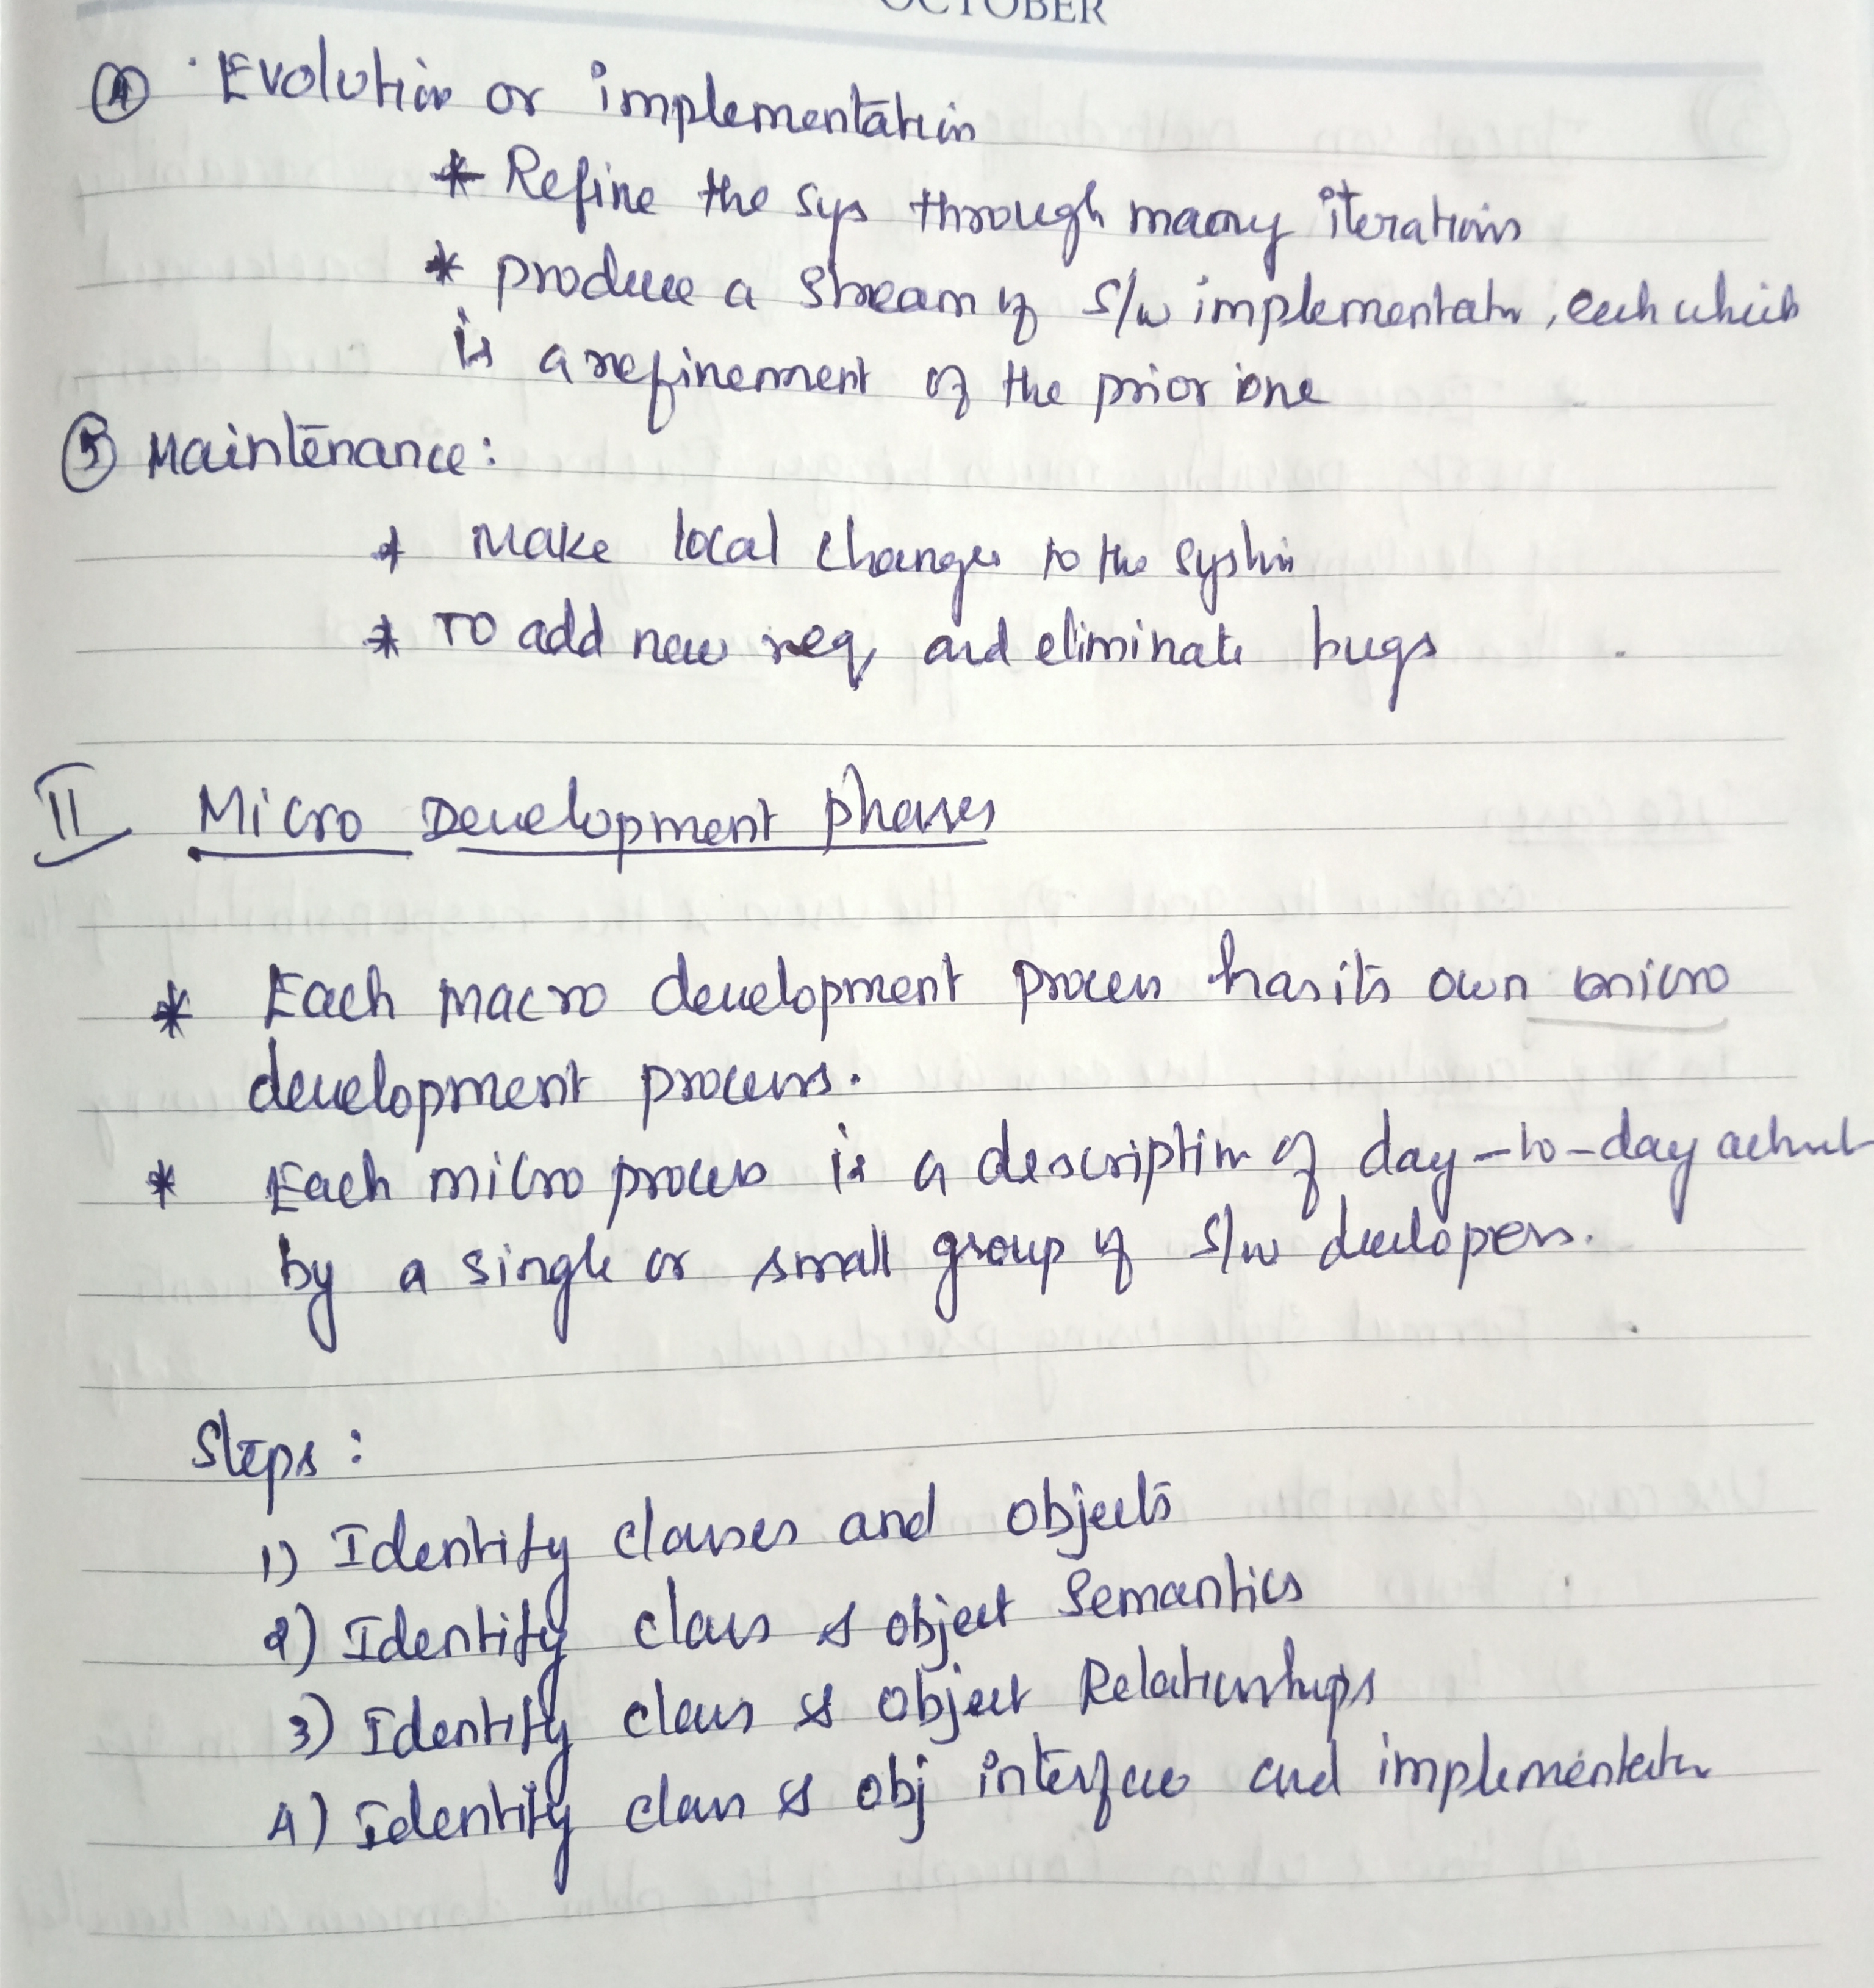 OCTOBER
④ Evolution or implementation
* Refine the sys through many iterations
* produce a stream of S/w implementatn, each which
is a refinement of the prior one
⑤ Maintenance:
* Make local changes to the system
* TO add new req and eliminate bugs
II Micro Development phases
* Each macro development process has its own micro
development process.
* Each micro process is a description of day-to-day
by a single or small group of S/w developers.
Steps:
1) Identify classes and objects
2) Identify class & object Semantics
3) Identify class & object Relationships
4) Identify class & obj interface and implementatn